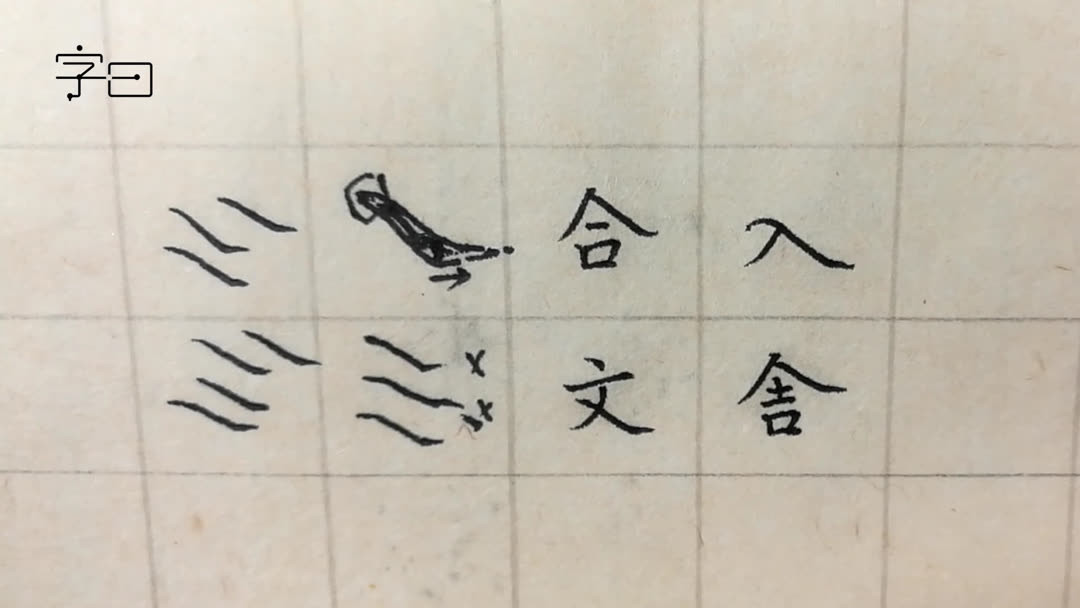 字曰
合 入
文 舎